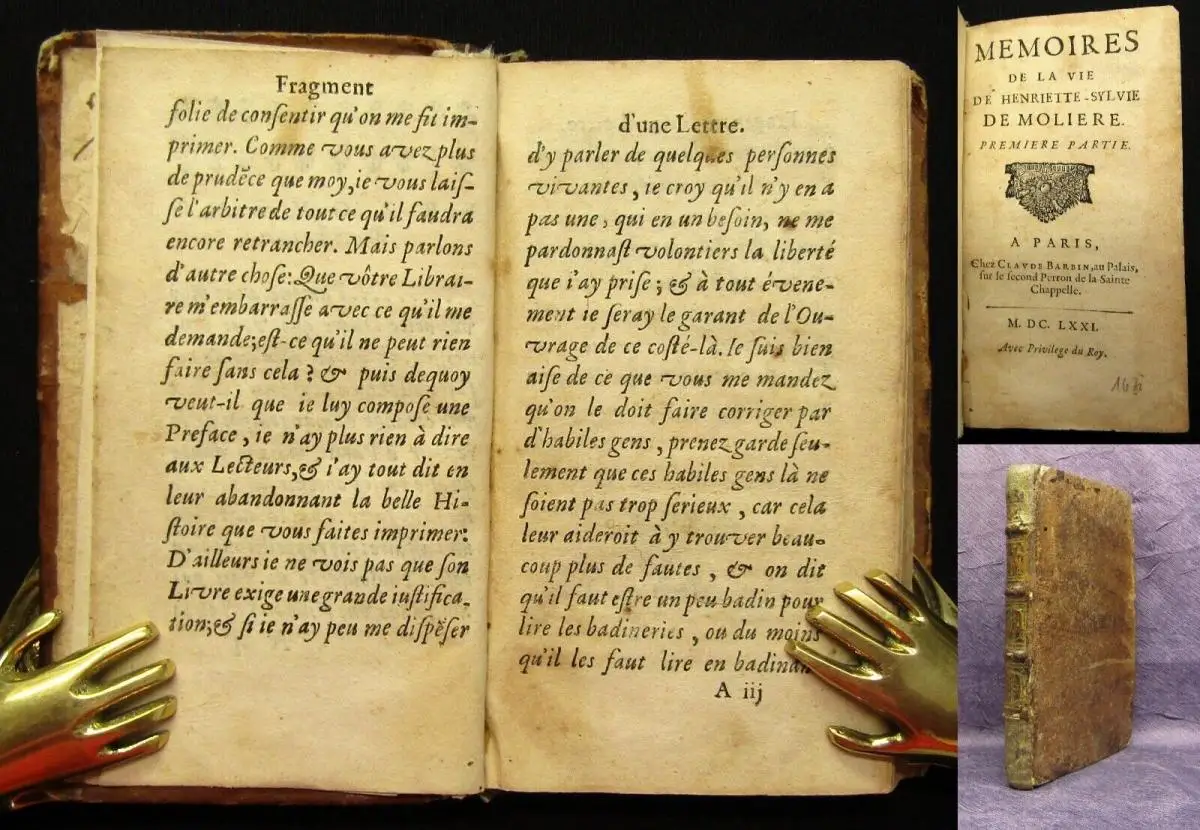 Fragment
folie de conſentir qu'on me fit im-
primer. Comme vous avez plus
de prudẽce que moy, ie vous laiſ-
ſe l'arbitre de tout ce qu'il faudra
encore retrancher. Mais parlons
d'autre choſe: Que vôtre Librai-
re m'embarraſſe avec ce qu'il me
demande; eſt-ce qu'il ne peut rien
faire ſans cela? & puis dequoy
veut-il que ie luy compoſe une
Preface, ie n'ay plus rien à dire
aux Lecteurs, & i'ay tout dit en
leur abandonnant la belle Hi-
ſtoire que vous faites imprimer.
D'ailleurs ie ne vois pas que ſon
Livre exige une grande iuſtifica-
tion; & ſi ie n'ay peu me diſpẽſer
d'une Lettre.
d'y parler de quelques perſonnes
vivantes, ie croy qu'il n'y en a
pas une, qui en un beſoin, ne me
pardonnaſt volontiers la liberté
que i'ay priſe; & à tout évene-
ment ie ſeray le garant de l'Ou-
vrage de ce coſté-là. Ie ſuis bien
aiſe de ce que vous me mandez
qu'on le doit faire corriger par
d'habiles gens, prenez garde ſeu-
lement que ces habiles gens là ne
ſoient pas trop ſerieux, car cela
leur aideroit à y trouver beau-
coup plus de fautes, & on dit
qu'il faut eſtre un peu badin pour
lire les badineries, ou du moins
qu'il les faut lire en badinant
A iij
MEMOIRES
DE LA VIE
DE HENRIETTE-SYLVIE
DE MOLIERE.
PREMIERE PARTIE.
A PARIS,
Chez CLAVDE BARBIN, au Palais,
ſur le ſecond Perron de la Sainte
Chappelle.
M. DC. LXXI.
Avec Privilege du Roy.
1671